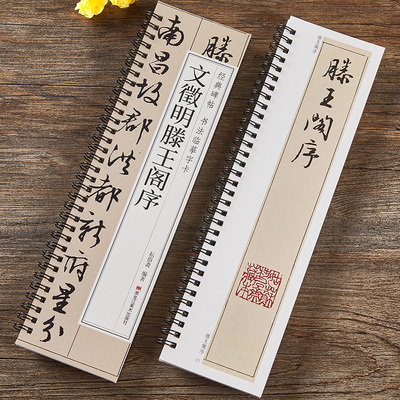 南昌故郡洪都新府星分
滕
经典碑帖 书法临摹字卡
文徵明滕王阁序
编著
滕王阁序
滕王阁序
滕王阁序